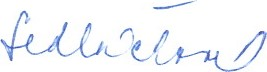 Sedláčková